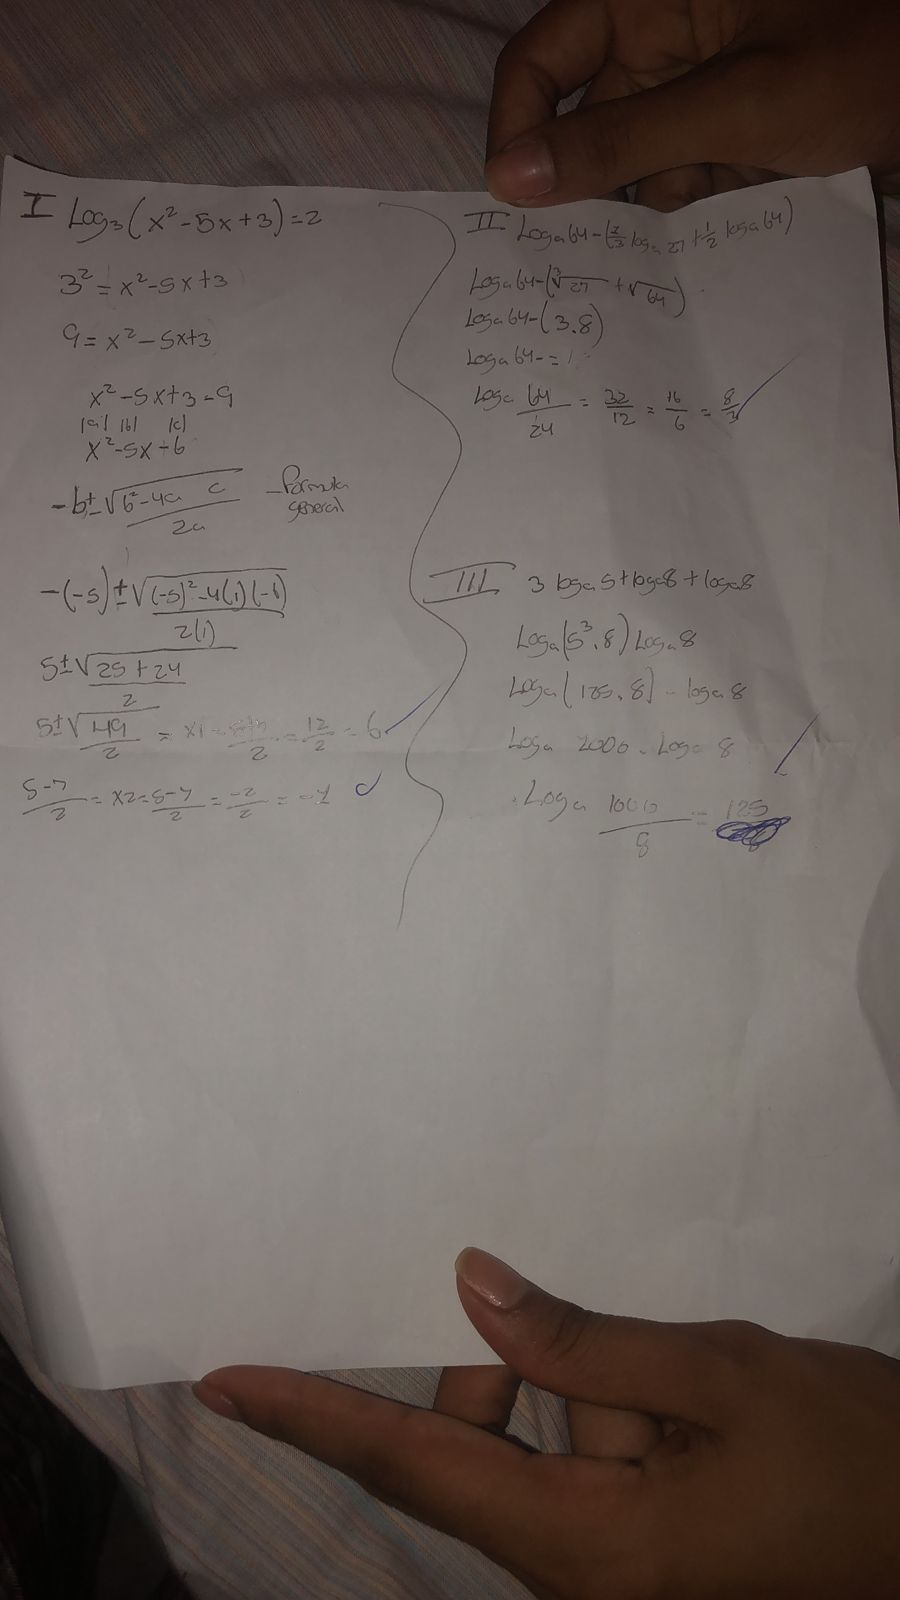 I Log₃(x²-5x+3)=2
3²=x²-5x+3
9=x²-5x+3
x²-5x+3-9
|a| |b| |c|
x²-5x-6
-b±√b²-4a c / 2a - formula general
-(-5)±√(-5)²-4(1)(-6) / 2(1)
5±√25+24 / 2
5±√49 / 2 = x1=5+7 / 2 = 12/2 = 6
5-7 / 2 = x2=5-7 / 2 = -2/2 = -1
II Loga64-( /3 loga 27+1/2 loga64)
Loga64-(³√27 +√64)
Loga64-(3.8)
Loga64-=
Loga 64/24 = 32/12 = 16/6 = 8/3
III 3 loga5+loga8+loga8
Loga(5³.8) Loga8
Loga(125.8)-loga8
Loga Loga 8
Loga 1000/8 = 125